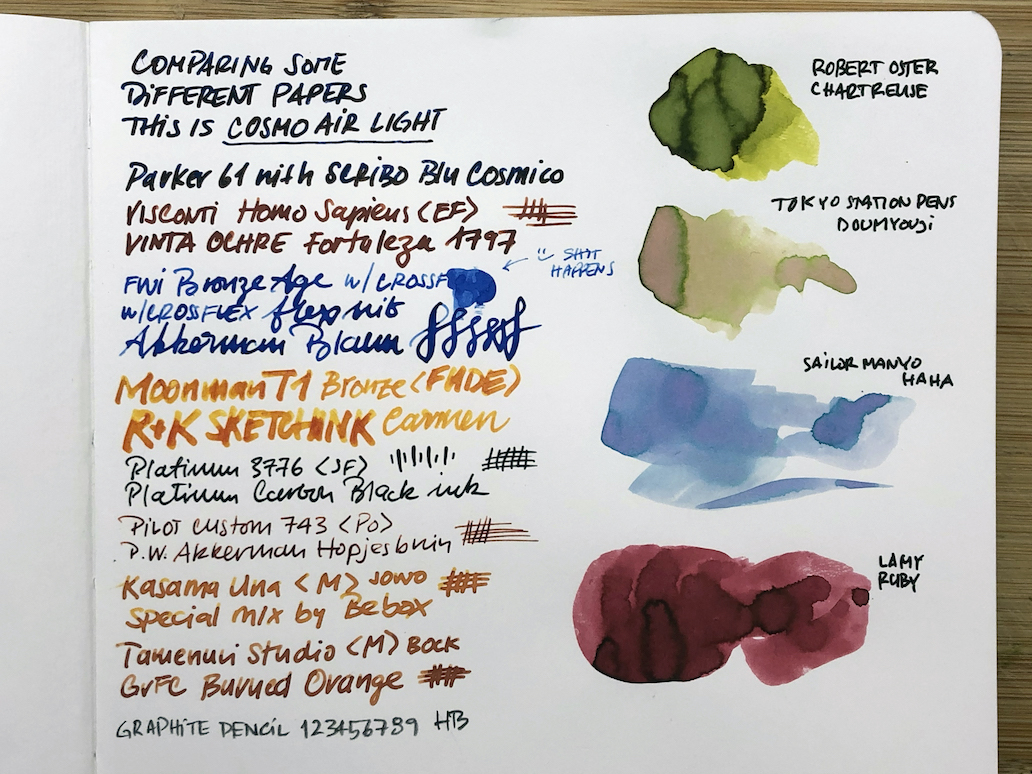 COMPARING SOME
DIFFERENT PAPERS
THIS IS COSMO AIR LIGHT
Parker 61 with SCRIBO Blu Cosmico
VISCONTI Homo Sapiens <EF>
VINTA OCHRE Fortaleza 1797
FWI Bronze Age w/ CROSSF
SHIT
HAPPENS
w/CROSSFLEX flex nib
Akkerman Blauw
Moonman T1 Bronze <FUDE>
R+K SKETCHINK Carmen
Platinum 3776 <SF>
Platinum Carbon Black ink
PILOT custom 743 <PO>
P.W. Akkerman Hopjesbruin
Kasama Una <M> JOWO
Special MIX by Bebox
Tamenuri Studio <M> BOCK
GvFC Burned Orange
GRAPHITE PENCIL 123456789 HB
ROBERT OSTER
CHARTREUSE
TOKYO STATION PENS
DOUMYOUJI
SAILOR MANYO
HAHA
LAMY
RUBY